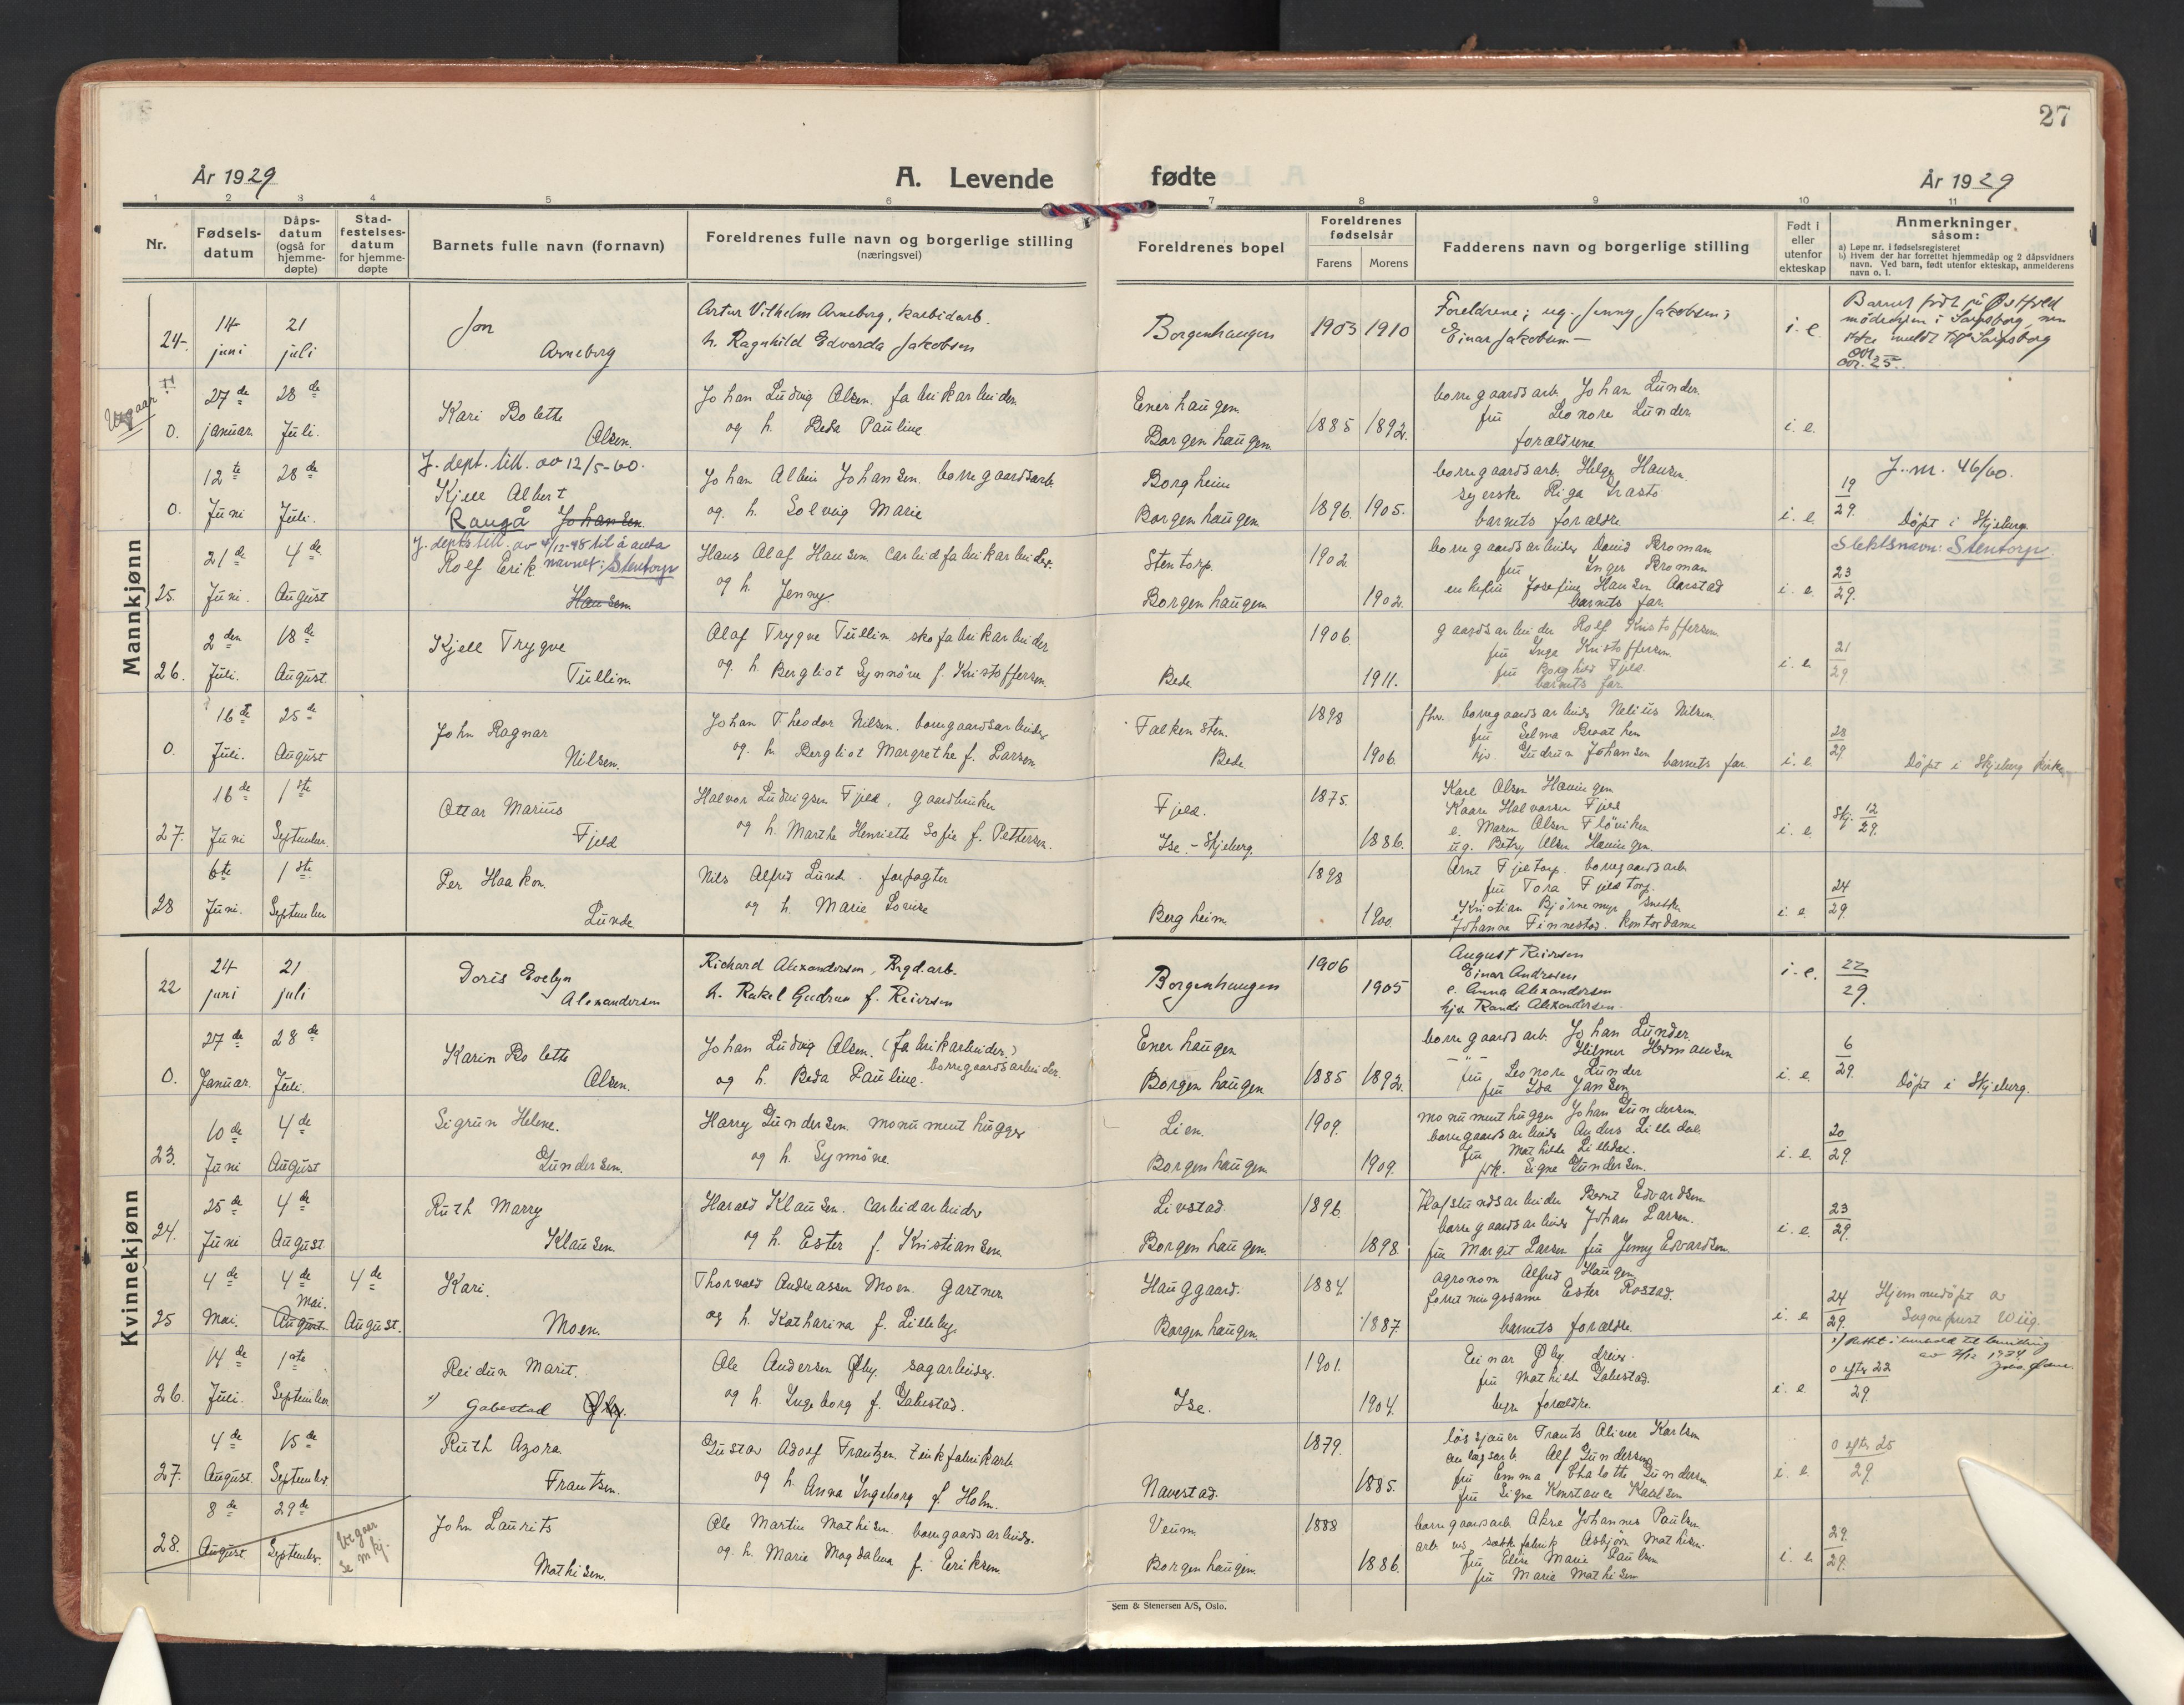 27
År 1929
A. Levende
fødte
År 1929
1 2 3 4 5 6 7 8 9 10 11
Nr.
Fødsels-
datum
Dåps-
datum
(også for
hjemme-
døpte)
Stad-
festelses-
datum
for hjemme-
døpte
Barnets fulle navn (fornavn)
Foreldrenes fulle navn og borgerlige stilling
(næringsvei)
Foreldrenes bopel
Foreldrenes
fødselsår
Farens Morens
Fadderens navn og borgerlige stilling
Født i
eller
utenfor
ekteskap
Anmerkninger
såsom:
a) Løpe nr. i fødselsregisteret
b) Hvem der har forrettet hjemmedåp og 2 dåpsvidners
navn. Ved barn, født utenfor ekteskap, anmelderens
navn o. l.
Mannkjønn
24.
14 juni
21 juli
Jon
Arneberg
Artur Vilhelm Arneberg, karbidarb.
h. Ragnhild Edvarda Jakobsen
Borgenhaugen
1903 1910
Foreldrene; ug. Jenny Jakobsen;
Einar Jakobsen
i. e.
Barnet født på Østfold
mödrehjem i Sarpsborg, men
ikke meldt til Sarpsborg
Utgaar
0.
27de januar.
28de Juli.
Kari Bolette
Olsen.
Johan Ludvig Olsen. fabrikarbeider
og h. Beda Pauline
Enerhaugen
Borgenhaugen
1885 1892.
borregaardsarb. Johan Lunder.
fru Leonore Lunder
forældrene
i. e.
0.
12te Juni
28de Juli.
J. dept. till. av 12/5-60.
Kjell Albert
Raugå Johansen.
Johan Albin Johansen. borregaardsarb.
og. h. Solveig Marie
Borgheim
Borgenhaugen
1896. 1905.
borregaardsarb. Helge Hansen
syerske Riga Grasto
barnets forældre
i. e.
19
29.
J. nr. 46/60.
Döpt i Skjeberg
25.
21de Juni.
4de August
J. depts till. av 4/12-48 til å anta
Rolf Erik navnet: Stentorp
Hansen
Hans Olaf Hansen. carbidfabrikarbeider.
og h. Jenny.
Stentorp.
Borgenhaugen
1902. 1902.
borregaardsarbeider David Broman
fru Inger Broman
enkefru Josefine Hansen Aarstad
barnets far.
i. e.
23
29.
Slektsnavn: Stentorp.
26.
2den Juli.
18de August
Kjell Trygve
Tullin.
Olaf Trygve Tullin. skofabrikarbeider
og. h. Bergliot Synnöve f. Kristoffersen.
Bede
1906. 1911.
gaardsarbeider Rolf Kristoffersen
fru Inga Kristoffersen.
fru Borghild Fjeld.
barnets far
i. e.
21
29
0.
16de Juli.
25de August
John Ragnar
Nilsen.
Johan Theodor Nilsen. borregaardsarbeider
og. h. Bergliot Margrethe f. Larsen
Falkensten.
Bede.
1898 1906.
fhv. borregaardsarbeider Nelius Nilsen.
fru Selma Braathen
hjv. Gudrun Johansen barnets far
i. e.
28
29.
Döpt i Skjeberg kirke
27.
16de Juni
1ste September.
Ottar Marius
Fjeld
Halvor Ludvigsen Fjeld, gaardbruker
og h. Marthe Henriette Sofie f. Pettersen.
Fjeld.
Ise. - Skjeberg.
1875. 1886.
Karl Olsen Hauingen
Kaare Halvorsen Fjeld
e. Maren Olsen Flöviken
ug. Betsy Olsen Hauingen.
i. e.
Skj. 12
29.
28
6te Juni.
1ste September
Per Haakon.
Lunde
Nils Alfred Lund. forpagter
og h. Marie Lovise
Bergheim.
1898 1900.
Arnt Fjeltorp. borregaardsarb.
fru Tora Fjeldtorp.
Kristian Bjørnemyr snekker
Johanne Finnestad. kontordame
i. e.
24
29.
Kvinnekjønn
22
24 juni
21 juli
Doris Evelyn
Alexandersen
Richard Alexandersen, Brgd.arb.
h. Rakel Gudrun f. Reiersen
Borgenhaugen
1906 1905
August Reiersen
Einar Andresen
e. Anna Alexandersen
hjv. Randi Alexandersen.
i. e.
22
29.
0.
27de Januar.
28de Juli.
Karin Bolette
Olsen.
Johan Ludvig Olsen. (fabrikarbeider.)
borregaardsarbeider.
og h. Beda Pauline.
Enerhaugen
Borgenhaugen
1885 1892.
borregaardsarb. Johan Lunder.
- " - Hilmer Hermansen
fru Leonore Lunder
fru Ida Jansen
i. e.
6
29.
Döpt i Skjeberg.
23.
10de Juni
4de August
Sigrun Helene.
Gundersen.
Harry Gundersen. monumenthugger
og h. Synnöve.
Lien.
Borgenhaugen
1909. 1909.
monumenthugger Johan Gundersen.
borregaardsarbeider Anders Lilledal.
fru Mathilde Lilledal.
frk. Signe Gundersen.
i. e.
20
29.
24.
25de Juni
4de August
Ruth Marry
Klausen.
Harald Klausen. carbidarbeider
og h. Ester f. Kristiansen
Livstad.
Borgenhaugen.
1896. 1898
Hafslundsarbeider Bernt Edvardsen
borregaardsarbeider Johan Larsen.
fru Margit Larsen fru Jenny Edvardsen
i. e.
23
29.
25
4de Mai.
4de Mai. August.
4de August.
Kari.
Moen.
Thorvald Andreassen Moen. Gartner
og h. Katharina f. Lilleby.
Hauggaard.
Borgenhaugen
1884. 1887.
agronom Alfred Haugen
forretningsdame Ester Rostad.
barnets forældre.
i. e.
24
29.
Hjemmedöpt av
Sogneprest Wiig.
26.
14de Juli.
1ste September
Reidun Marit.
x) Gabestad Øby.
Ole Andersen Øby. sagarbeider.
og h. Ingeborg f. Gabestad.
Ise.
1901. 1904.
Einar Øby dreier.
fru Mathilde Gabestad.
begge forældre
i. e.
0 efter 22
29.
x) Rettet i henhold til bevilling
27.
4de August.
15de September.
Ruth Azora
Frantsen.
Gustav Adolf Frantzen. zinkfabrikarb.
og h. Anna Ingeborg f. Holm.
Navestad.
1879. 1885.
lössjauer Frants Oliver Karlsen
anlægsarb. Alf Gundersen
fru Emma Chalotte Gundersen
fru Signe Konstance Karlsen
i. e.
0 efter 25
29.
28.
8de August.
29de September.
Utgaar
Se mkj.
John Laurits
Mathisen.
Ole Martin Mathisen. borregaardsarbeider.
og. h. Marie Magdalena f. Eriksen
Veum.
Borgenhaugen.
1888 1886.
borregaardsarb. Aksel Johannes Paulsen.
arb. ved sæbefabrik Asbjørn Mathisen.
fru Elise Marie Paulsen
fru Marie Mathisen
i. e.
29
29.
Sem & Stenersen A/S, Oslo.